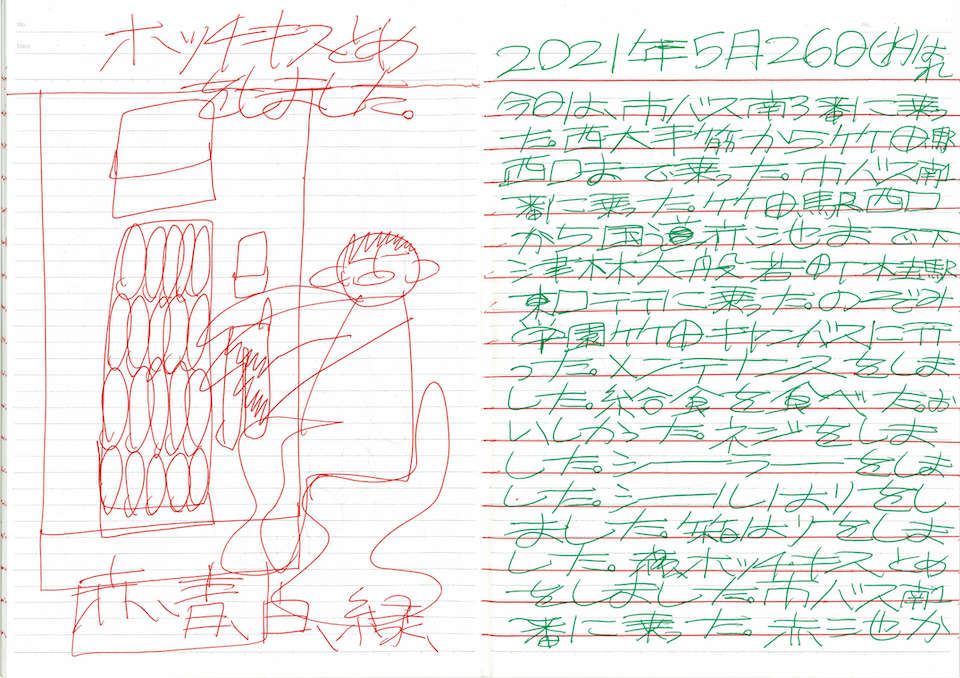 No.
Date
ホッチキスとめ
をしました。
赤青白緑
No.
2021年5月26日(水)はれ
今日は、市バス南3番に乗っ
た。西大手筋から竹田駅
西口まで乗った。市バス南1
番に乗った。竹田駅西口
から国道赤池まで下
津林大般若町桂駅
東口行に乗った。のぞみ
学園竹田キャンバスに行
った。メンテナンスをしま
した。給食を食べた。お
いしかった。ネジをしま
した。シーラーをしま
した。シールはりをし
ました。箱はりをしま
した。ホッチキスとめ
をしました。市バス南1
番に乗った。赤池か